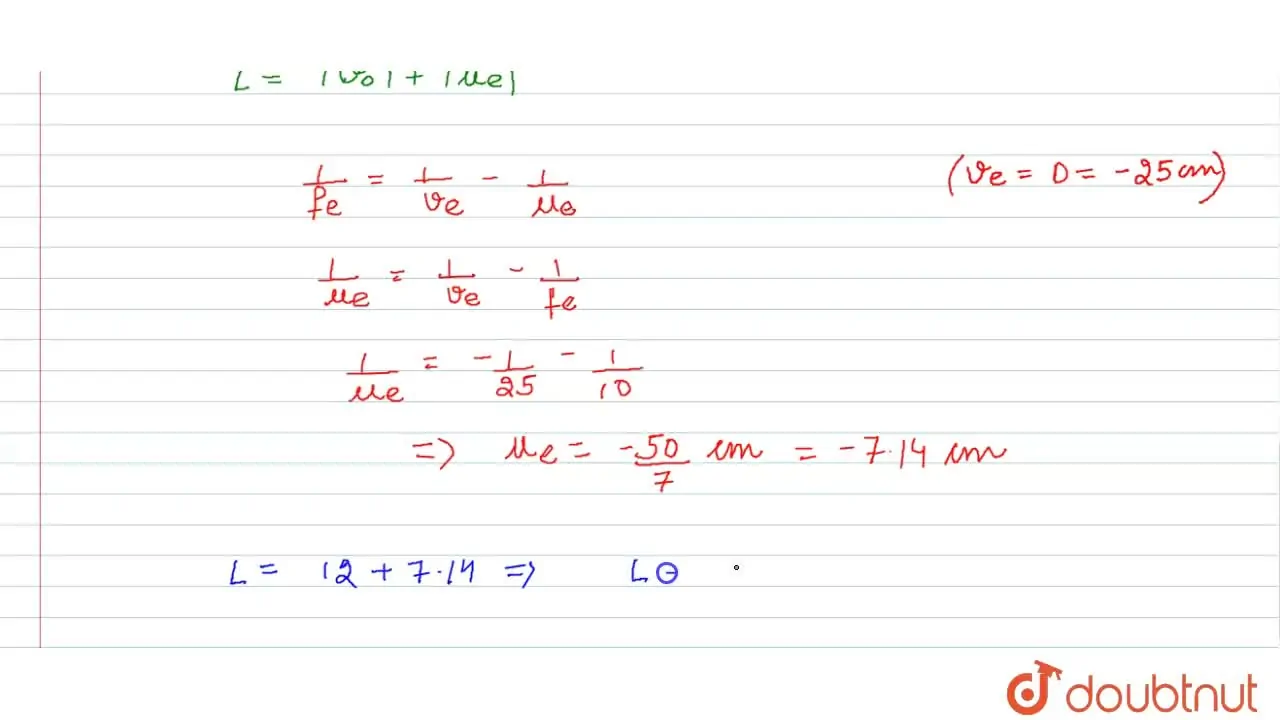 L = |v₀| + |ue|
1/fe = 1/ve - 1/ue (ve = D = -25 cm)
1/ue = 1/ve - 1/fe
1/ue = -1/25 - 1/10
=> ue = -50/7 cm = -7.14 cm
L = 12 + 7.14 => L =
doubtnut